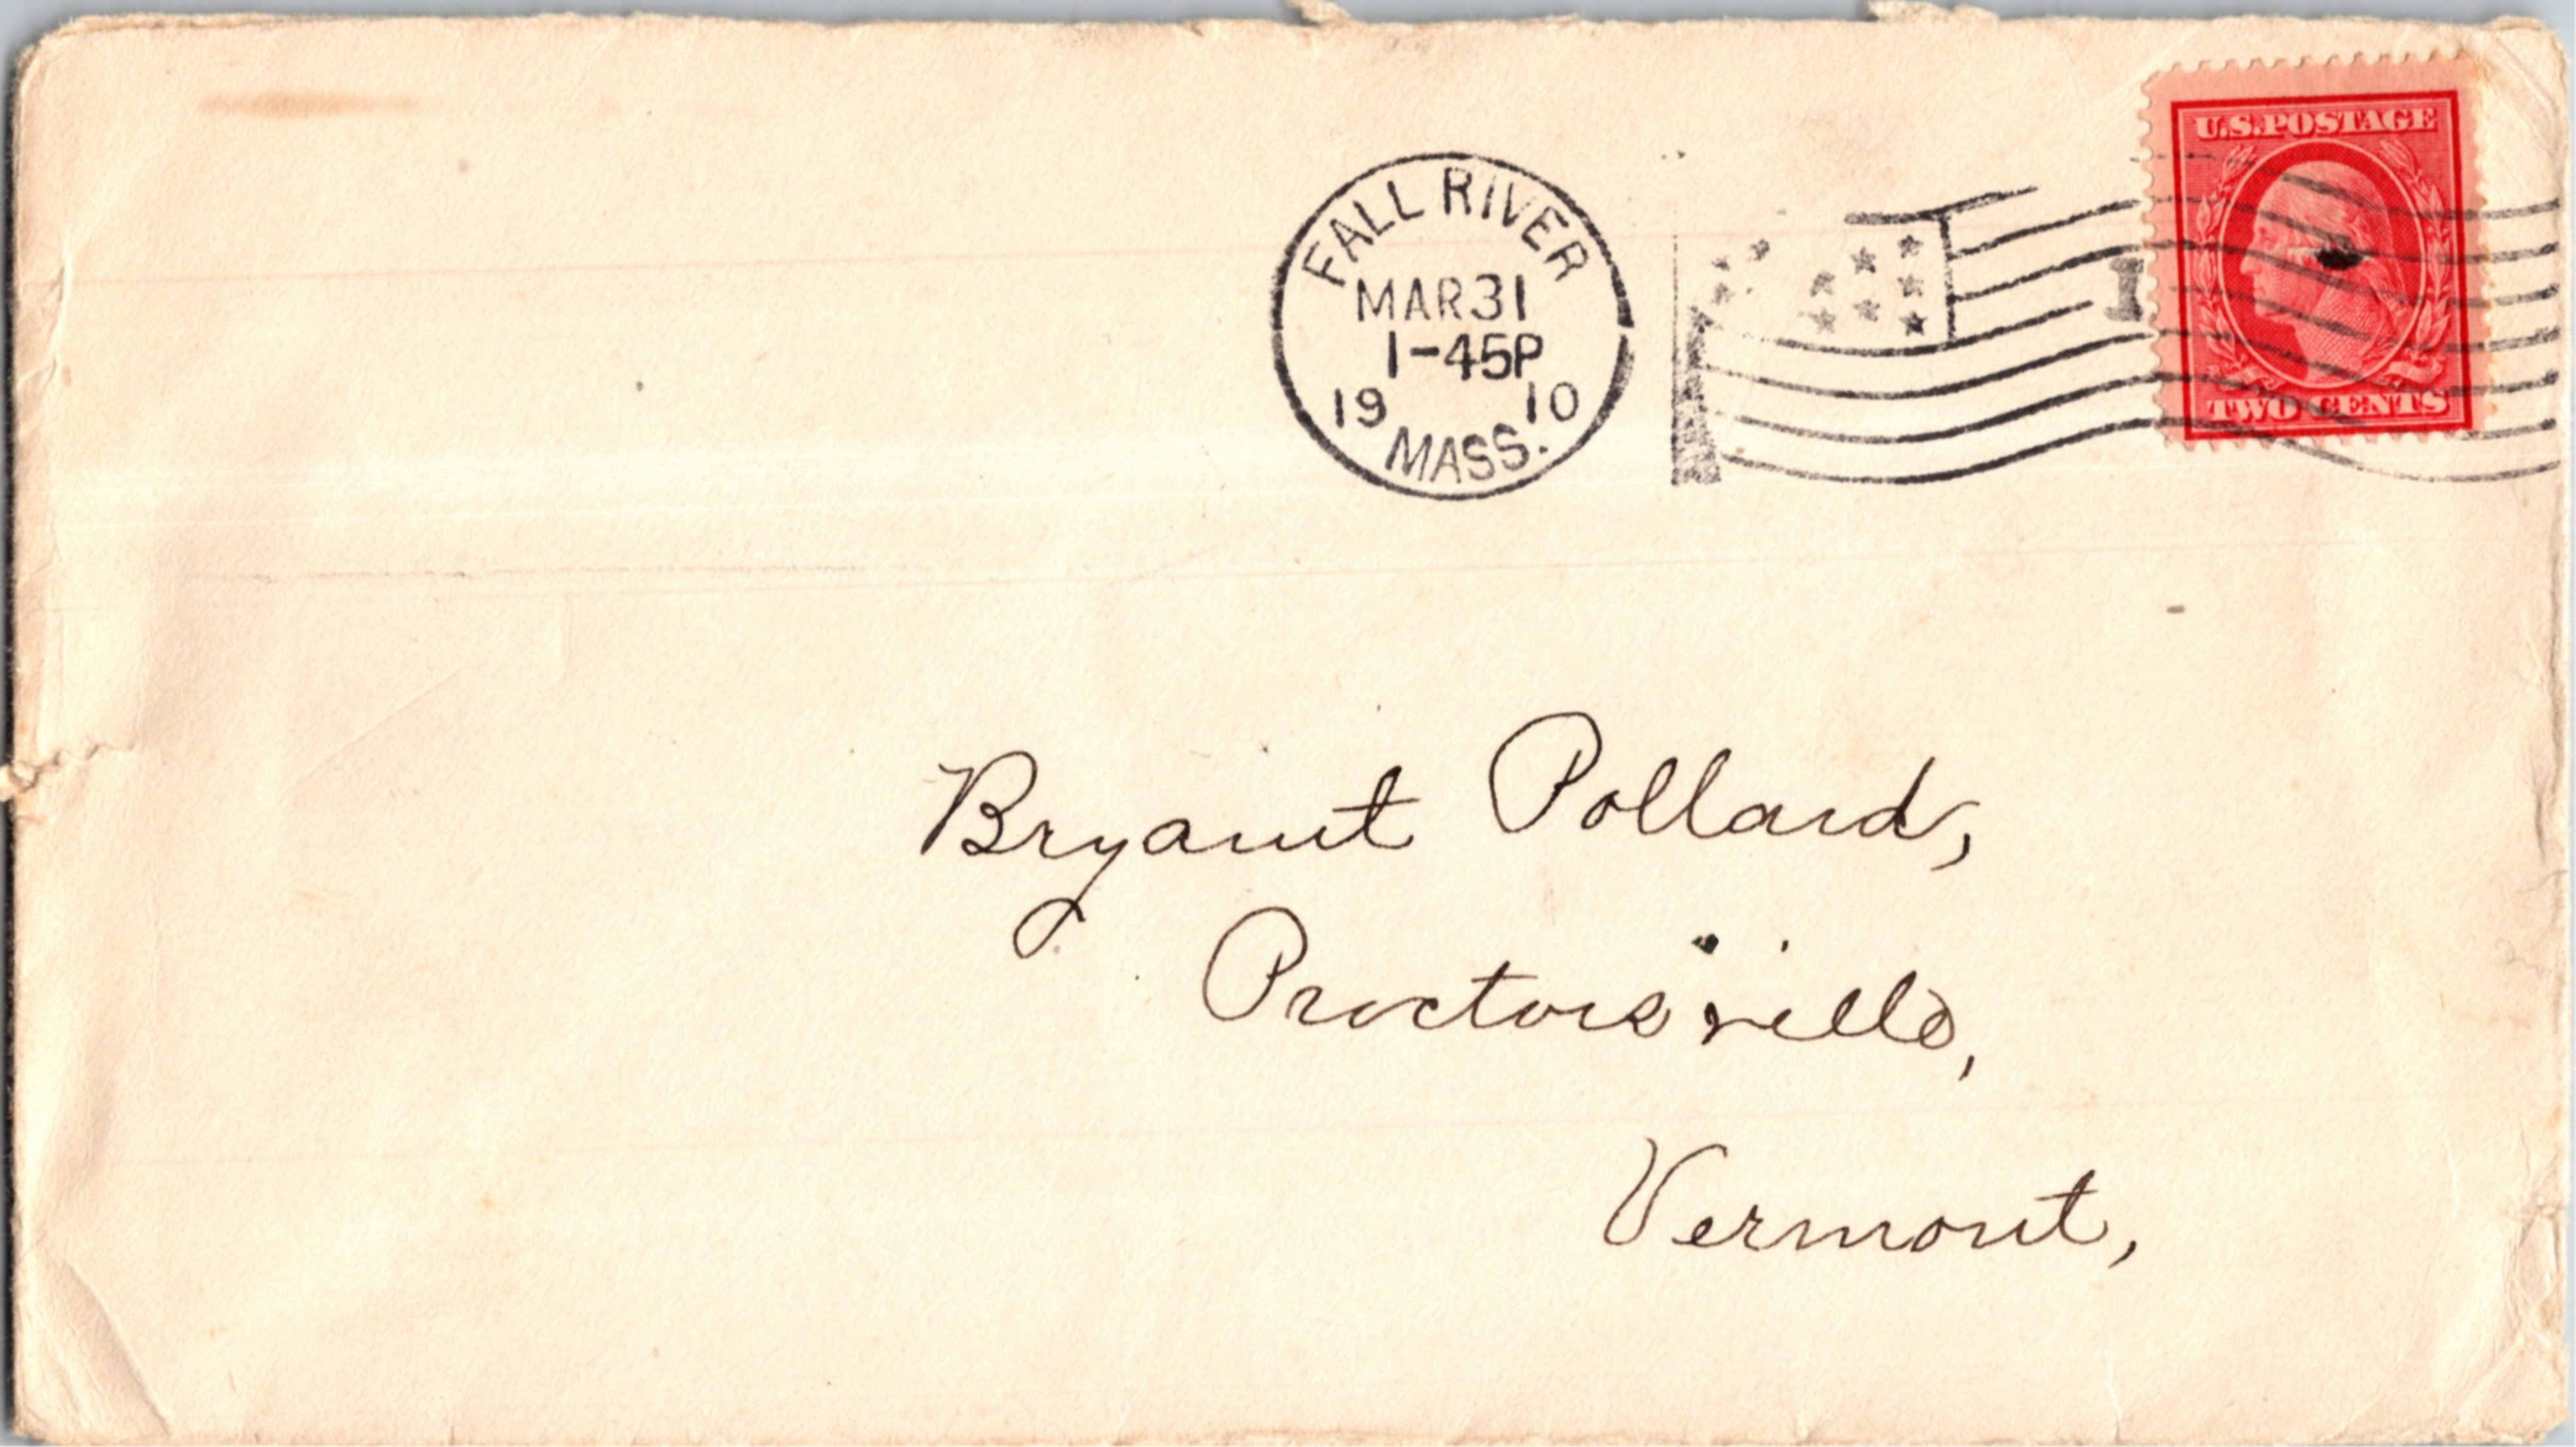 FALL RIVER
MAR 31
1-45P
19 10
MASS.
1
U.S. POSTAGE
TWO CENTS
Bryant Pollard,
Proctorsville,
Vermont,